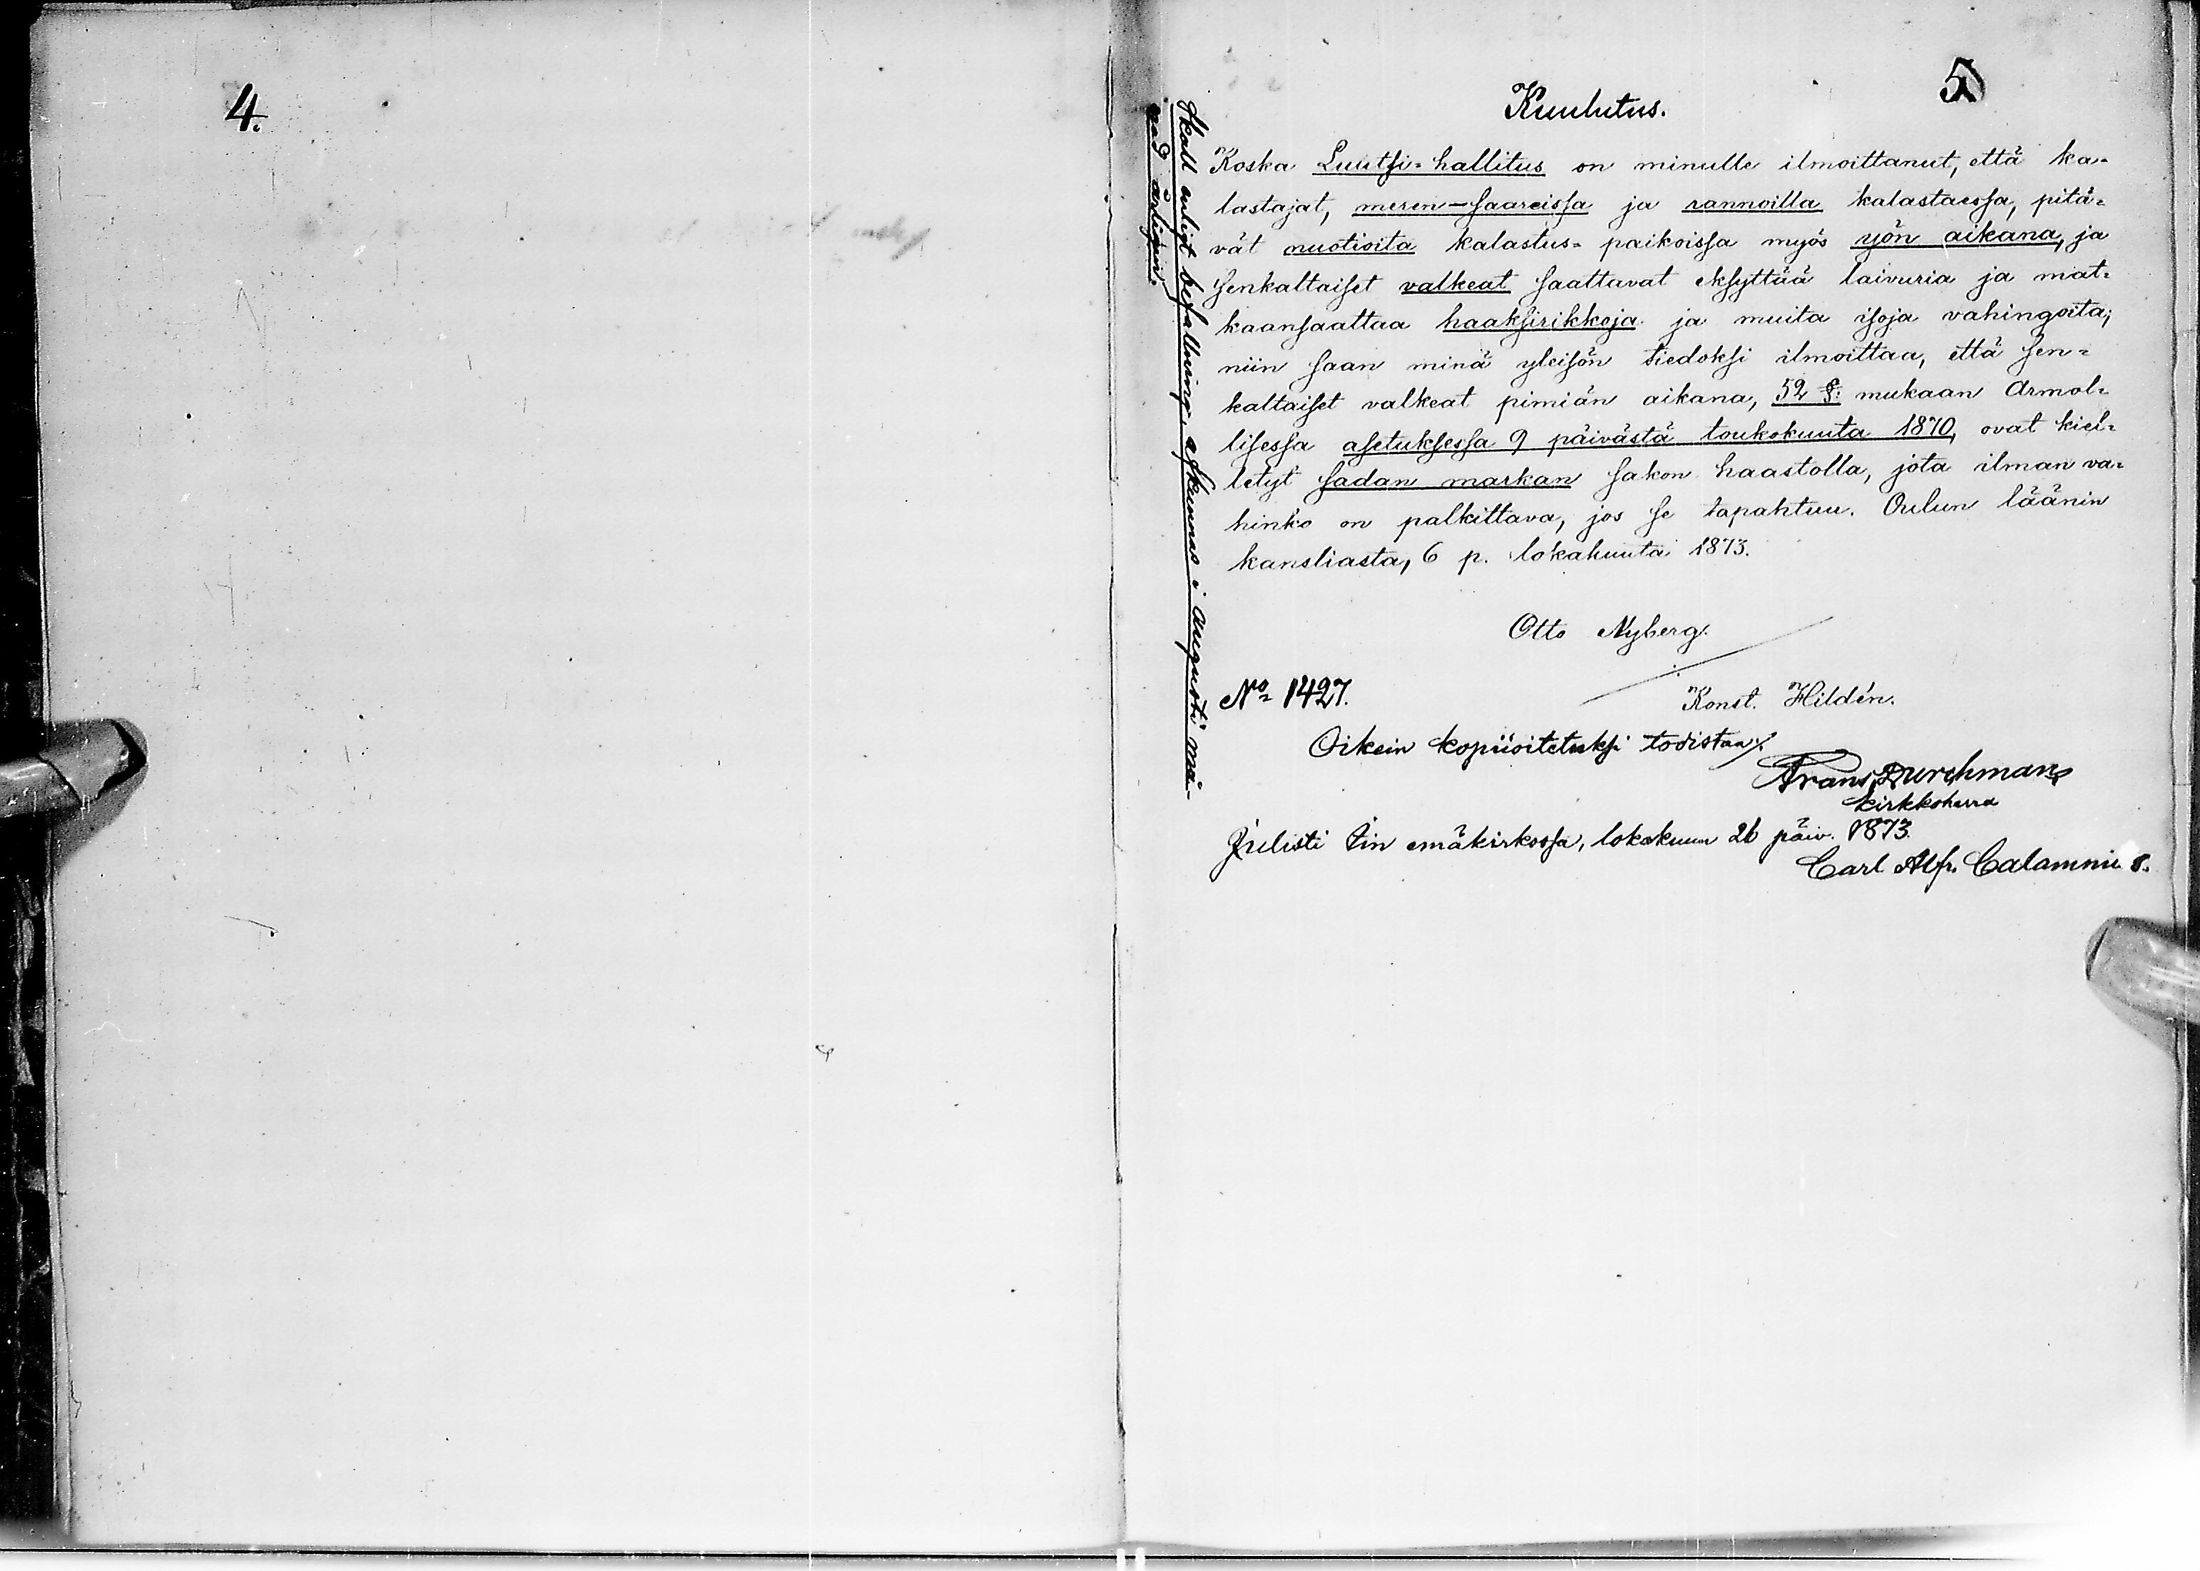 4.
5
Kuulutus.
Koska Luutsi-hallitus on minulle ilmoittanut, että ka-
lastajat, meren-saareissa ja rannoilla kalastaessa, pitä-
vät nuotioita kalastus-paikoissa myös yön aikana, ja
senkaltaiset valkeat saattavat eksyttää laivuria ja mat-
kaansaattaa haaksirikkoja ja muita isoja vahingoita;
niin saan minä yleisön tiedoksi ilmoittaa, että sen-
kaltaiset valkeat pimiän aikana, 52 §: mukaan Armol-
lisessa asetuksessa 9 päivästä toukokuuta 1870, ovat kiel-
letyt sadan markan sakon haastolla, jota ilman va-
hinko on palkittava, jos se tapahtuu. Oulun läänin
kansliasta, 6 p. lokakuuta 1873.
Otto Nyberg.
No 1427.
Konst. Hildén.
Oikein kopiioitetuksi todistaa/.
Frans Durchman,
kirkkoherra
Julisti Iin emäkirkossa, lokakuun 26 päiv. 1873.
Carl Alfr. Calamnius.
Skall enligt befallning afkunnas i Augusti må-
nad årligen.